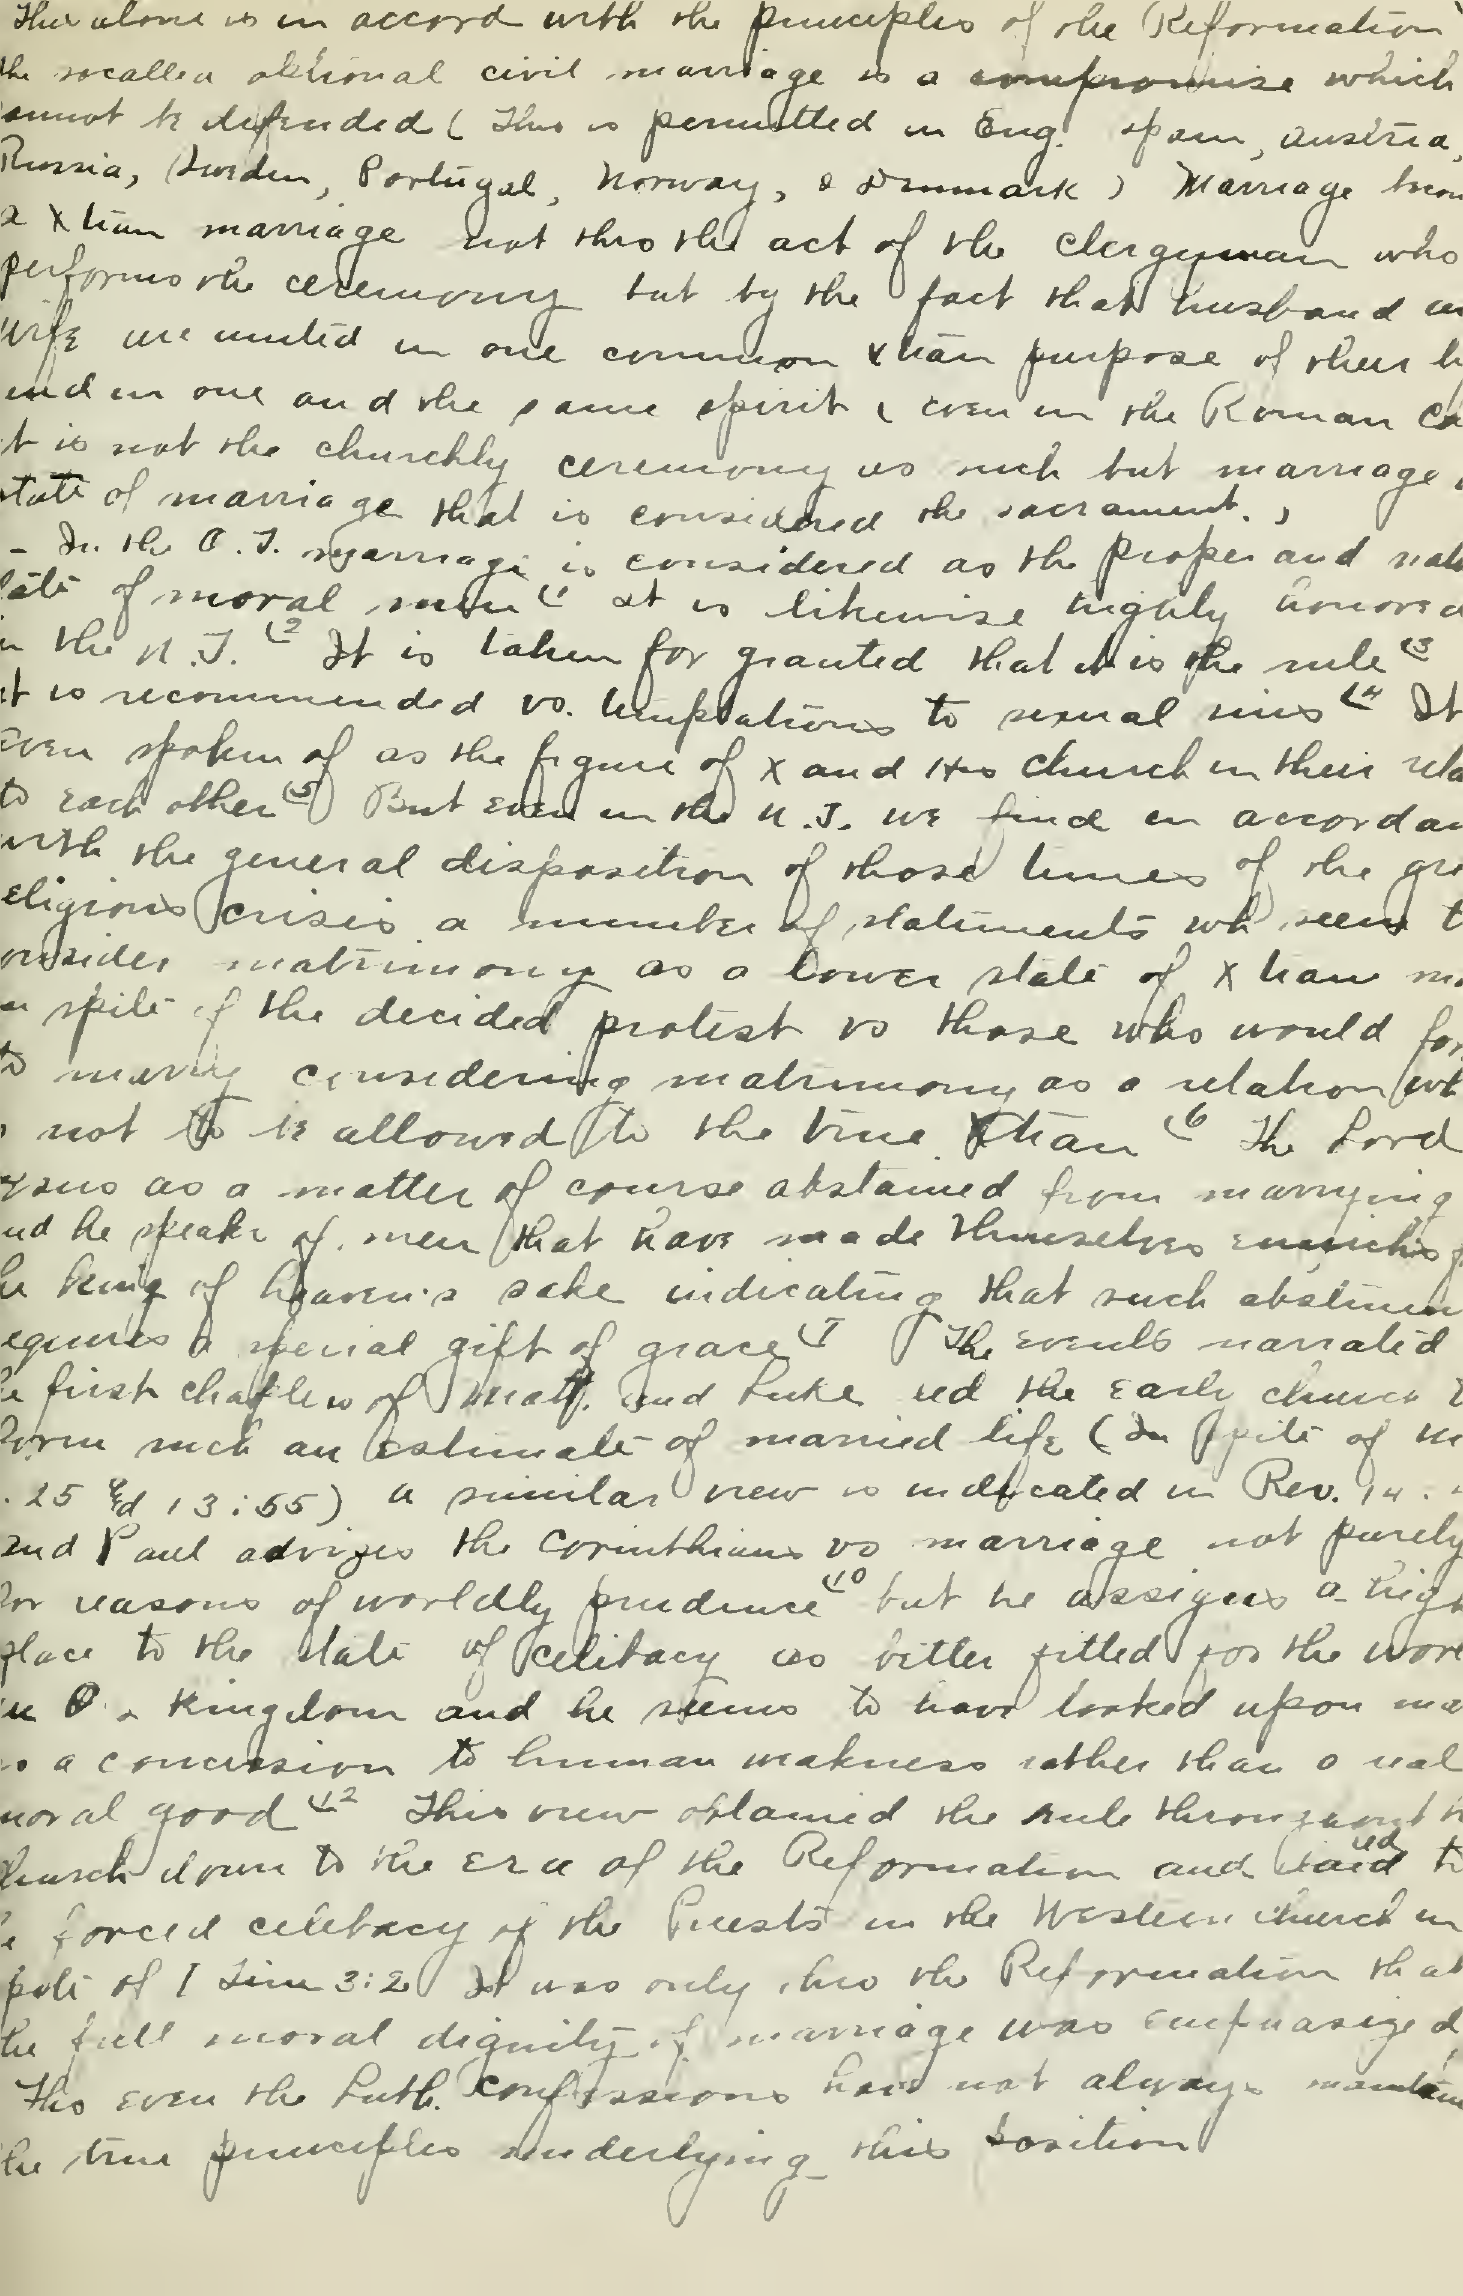 This alone is in accord with the principles of the Reformation
the socalled obtional civil marriage is a compromise which
annot be defended ( This is permitted in Eng. Spain, Austria,
Russia, Sweden, Portugal, Norway, & Denmark ) Marriage
a Xtian marriage not thro the act of the clergyman who
performs the ceremony but by the fact that husband an
wife are united in one common Xtian purpose of their
and in one and the same spirit ( even in the Roman Ca
t is not the churchly ceremony as such but marriage
state of marriage that is considered the sacrament. )
- In the O. T. marriage is considered as the proper and
tate of moral men (1 It is likewise highly honored
in the N. T. (2 It is taken for granted that it is the rule (3
it is recommended vs. temptations to sexual sins (4 It
even spoken of as the figure of X and His church in their rela
to each other (5) But even in the N. T. we find in accordan
with the general disposition of those times of the gre
eligious crisis a number of statements wh seem t
onsider matrimony as a lower state of Xtian
in spite of the decided protest vs those who would for
to marry considering matrimony as a relation wh
not to be allowed to the true Xtian (6 The Lord
esus as a matter of course abstained from marrying
nd he speaks of men that have made themselves eunuchs
he king of heaven's sake indicating that such abstinen
equires a special gift of grace (7 The events narrated
e first chapters of Matt. and Luke led the early church t
form such an estimate of married life ( In spite of
. 25 & 13:55) a similar view is indicated in Rev. 14.
and Paul advizes the Corinthians vs marriage not purely
for reasons of worldly prudence (10 but he assigns a high
place to the state of celibacy as better fitted for the work
in Kingdom and he seems to have looked upon ma
s a concession to human weakness rather than a real
moral good (12 This view obtained the rule throughout
church down to the era of the Reformation and led t
e forced celibacy of the Priests in the Western church in
pite of 1 Tim 3:2 It was only thro the Reformation that
the full moral dignity of marriage was emphasized,
Tho even the Luth. confessions have not always maintain
the true principles underlying this position